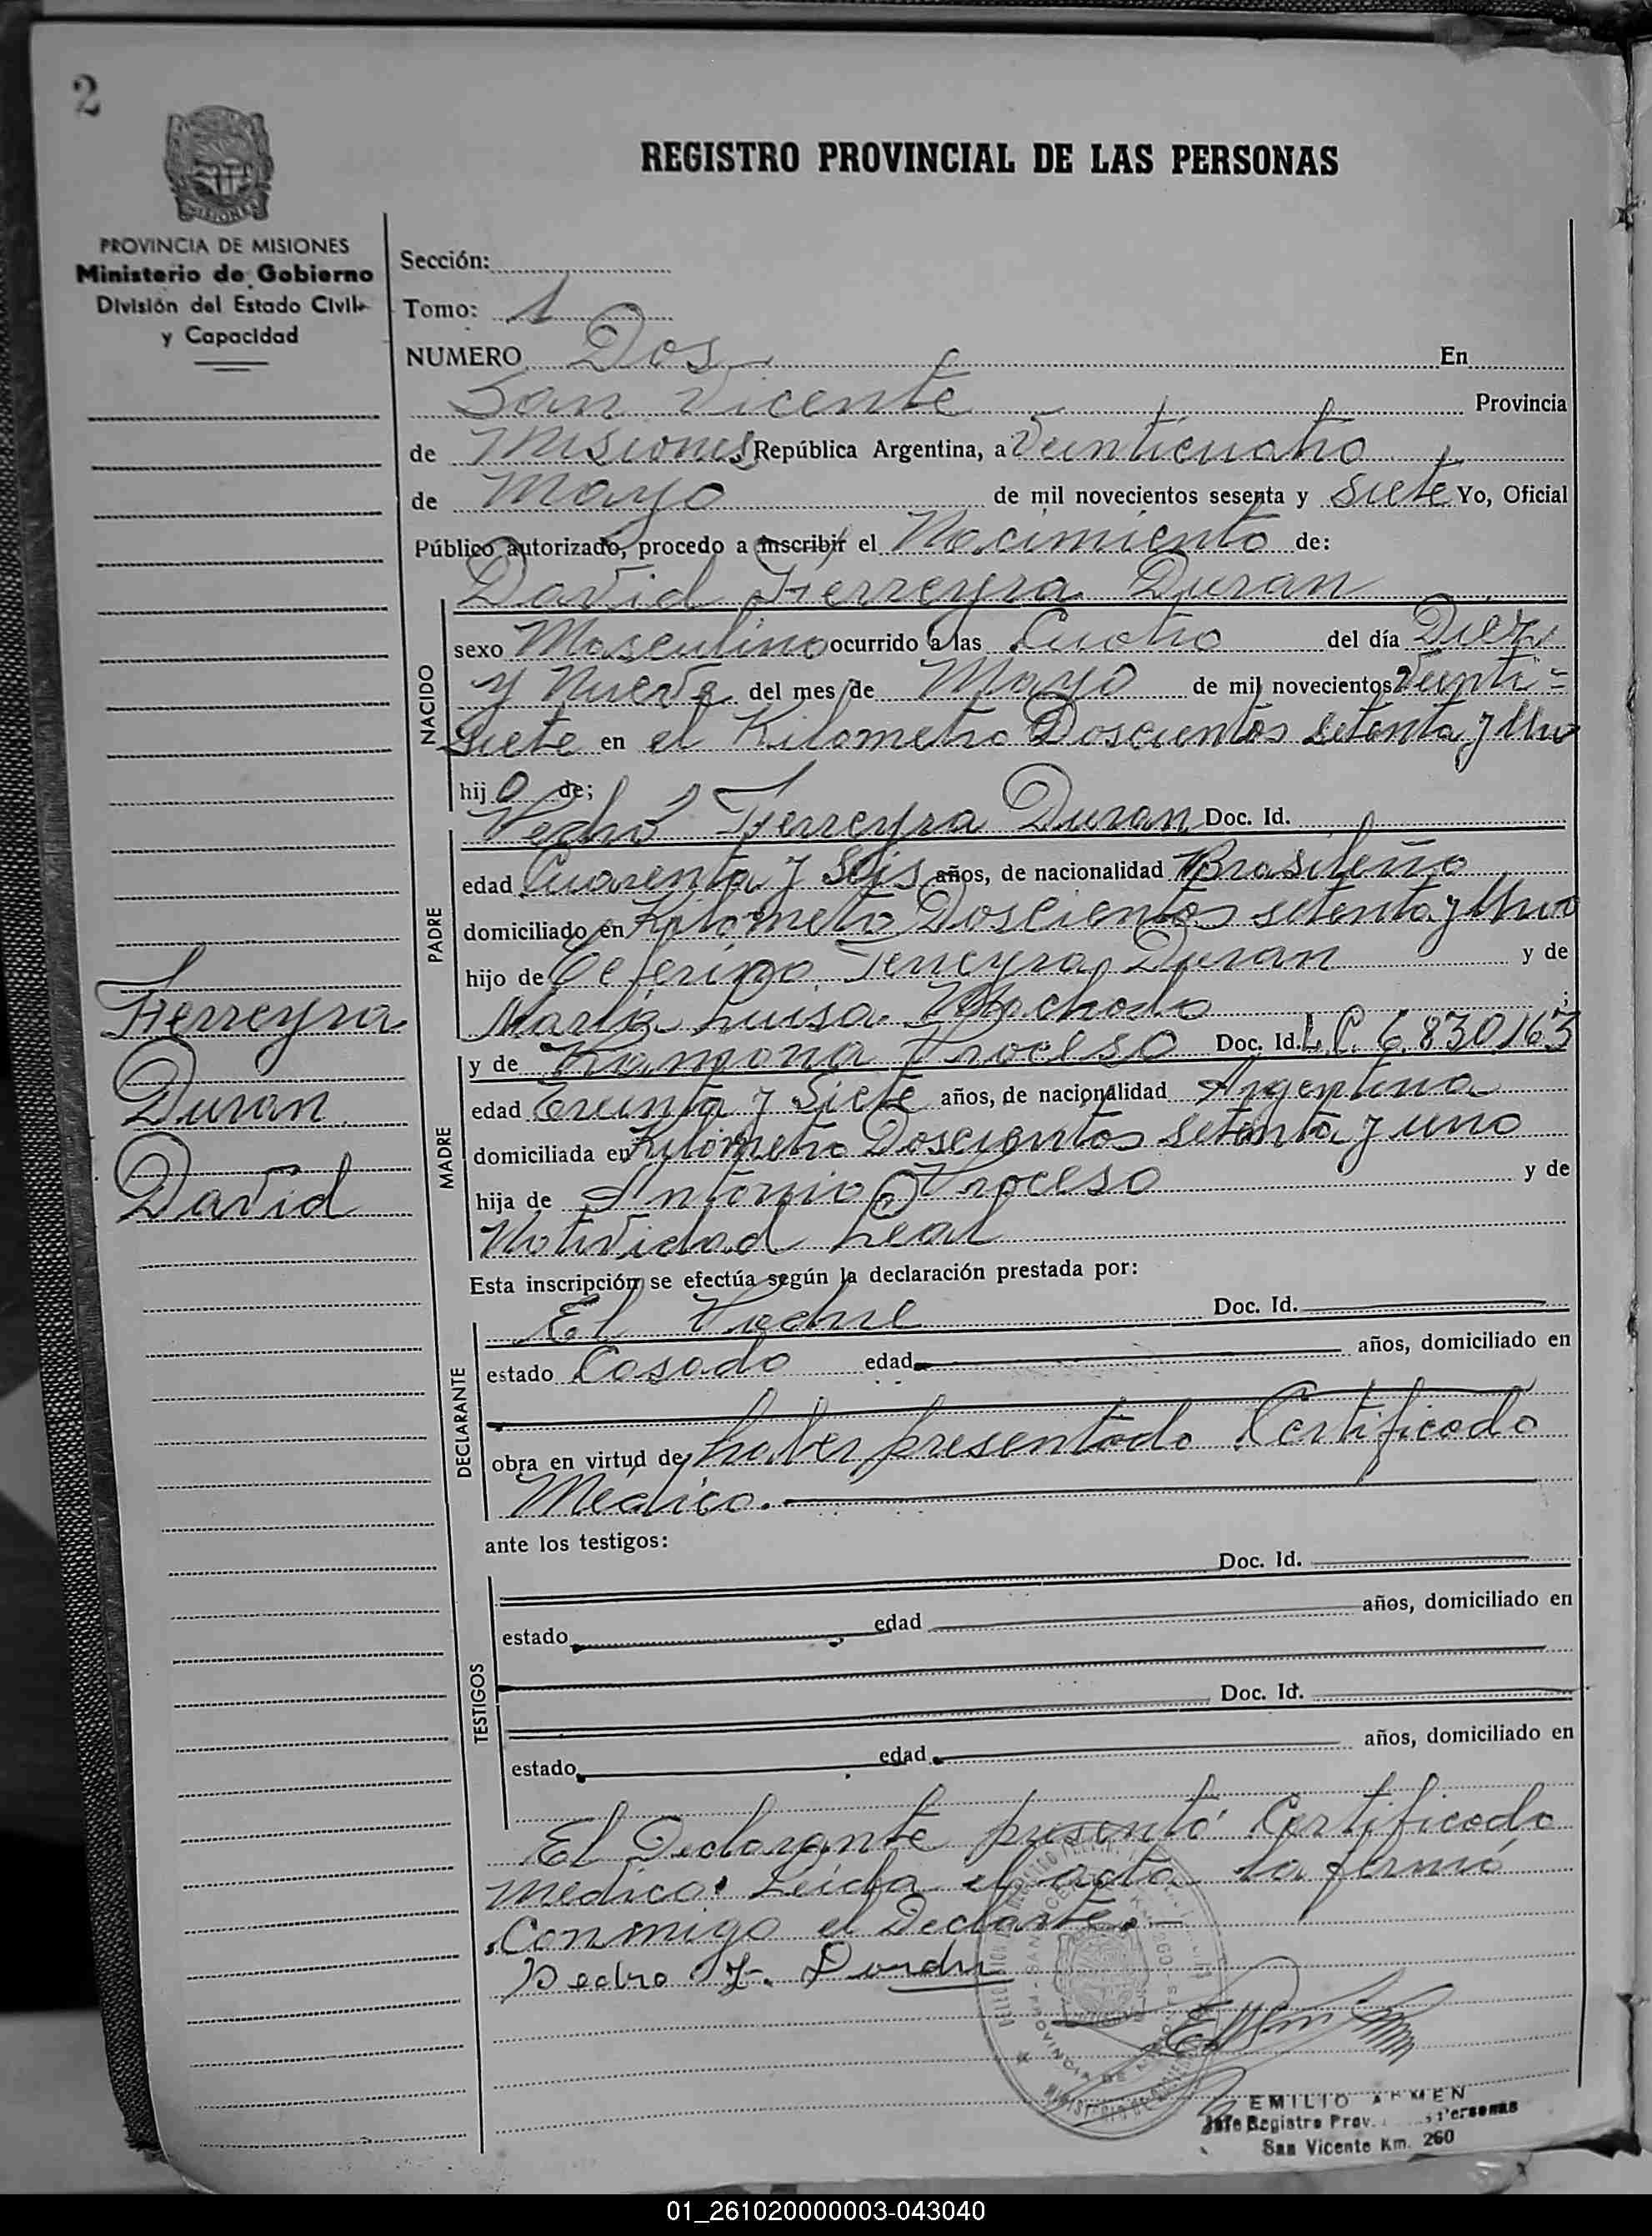 2
REGISTRO PROVINCIAL DE LAS PERSONAS
MISIONES
PROVINCIA DE MISIONES
Ministerio de Gobierno
División del Estado Civil
y Capacidad
Sección:
Tomo: 1
NUMERO Dos En
San Vicente Provincia
de Misiones República Argentina, a Veinticuatro
de Mayo de mil novecientos sesenta y siete Yo, Oficial
Público autorizado, procedo a inscribir el Nacimiento de:
David Ferreyra Duran
NACIDO
sexo Masculino ocurrido a las Cuatro del día Diez
y Nueve del mes de Mayo de mil novecientos Veinti=
siete en el Kilometro Doscientos setenta y Uno
hijo de;
Pedro Ferreyra Duran Doc. Id.
PADRE
edad Cuarenta y Seis años, de nacionalidad Brasileño
domiciliado en Kilometro Doscientos setenta y Uno
hijo de Ceferino Ferreyra Duran y de
María Luisa Machado ;
y de Ramona Proceso Doc. Id. L.C. 6.830.163
MADRE
edad Treinta y Siete años, de nacionalidad Argentina
domiciliada en Kilometro Doscientos setenta y uno
hija de Antonio Proceso y de
Natividad Leal
Ferreyra
Duran
David
Esta inscripción se efectúa según la declaración prestada por:
El Padre Doc. Id.
DECLARANTE
estado Casado edad años, domiciliado en
obra en virtud de haber presentado Certificado
Medico.
ante los testigos:
Doc. Id.
TESTIGOS
estado edad años, domiciliado en
Doc. Id.
estado edad años, domiciliado en
El Declarante presentó Certificado
medico. Leída el acta la firmó
Conmigo el Declarte.
Pedro F.
EMILIO
Jefe Registro Prov. Personas
San Vicente Km. 260
01_261020000003-043040